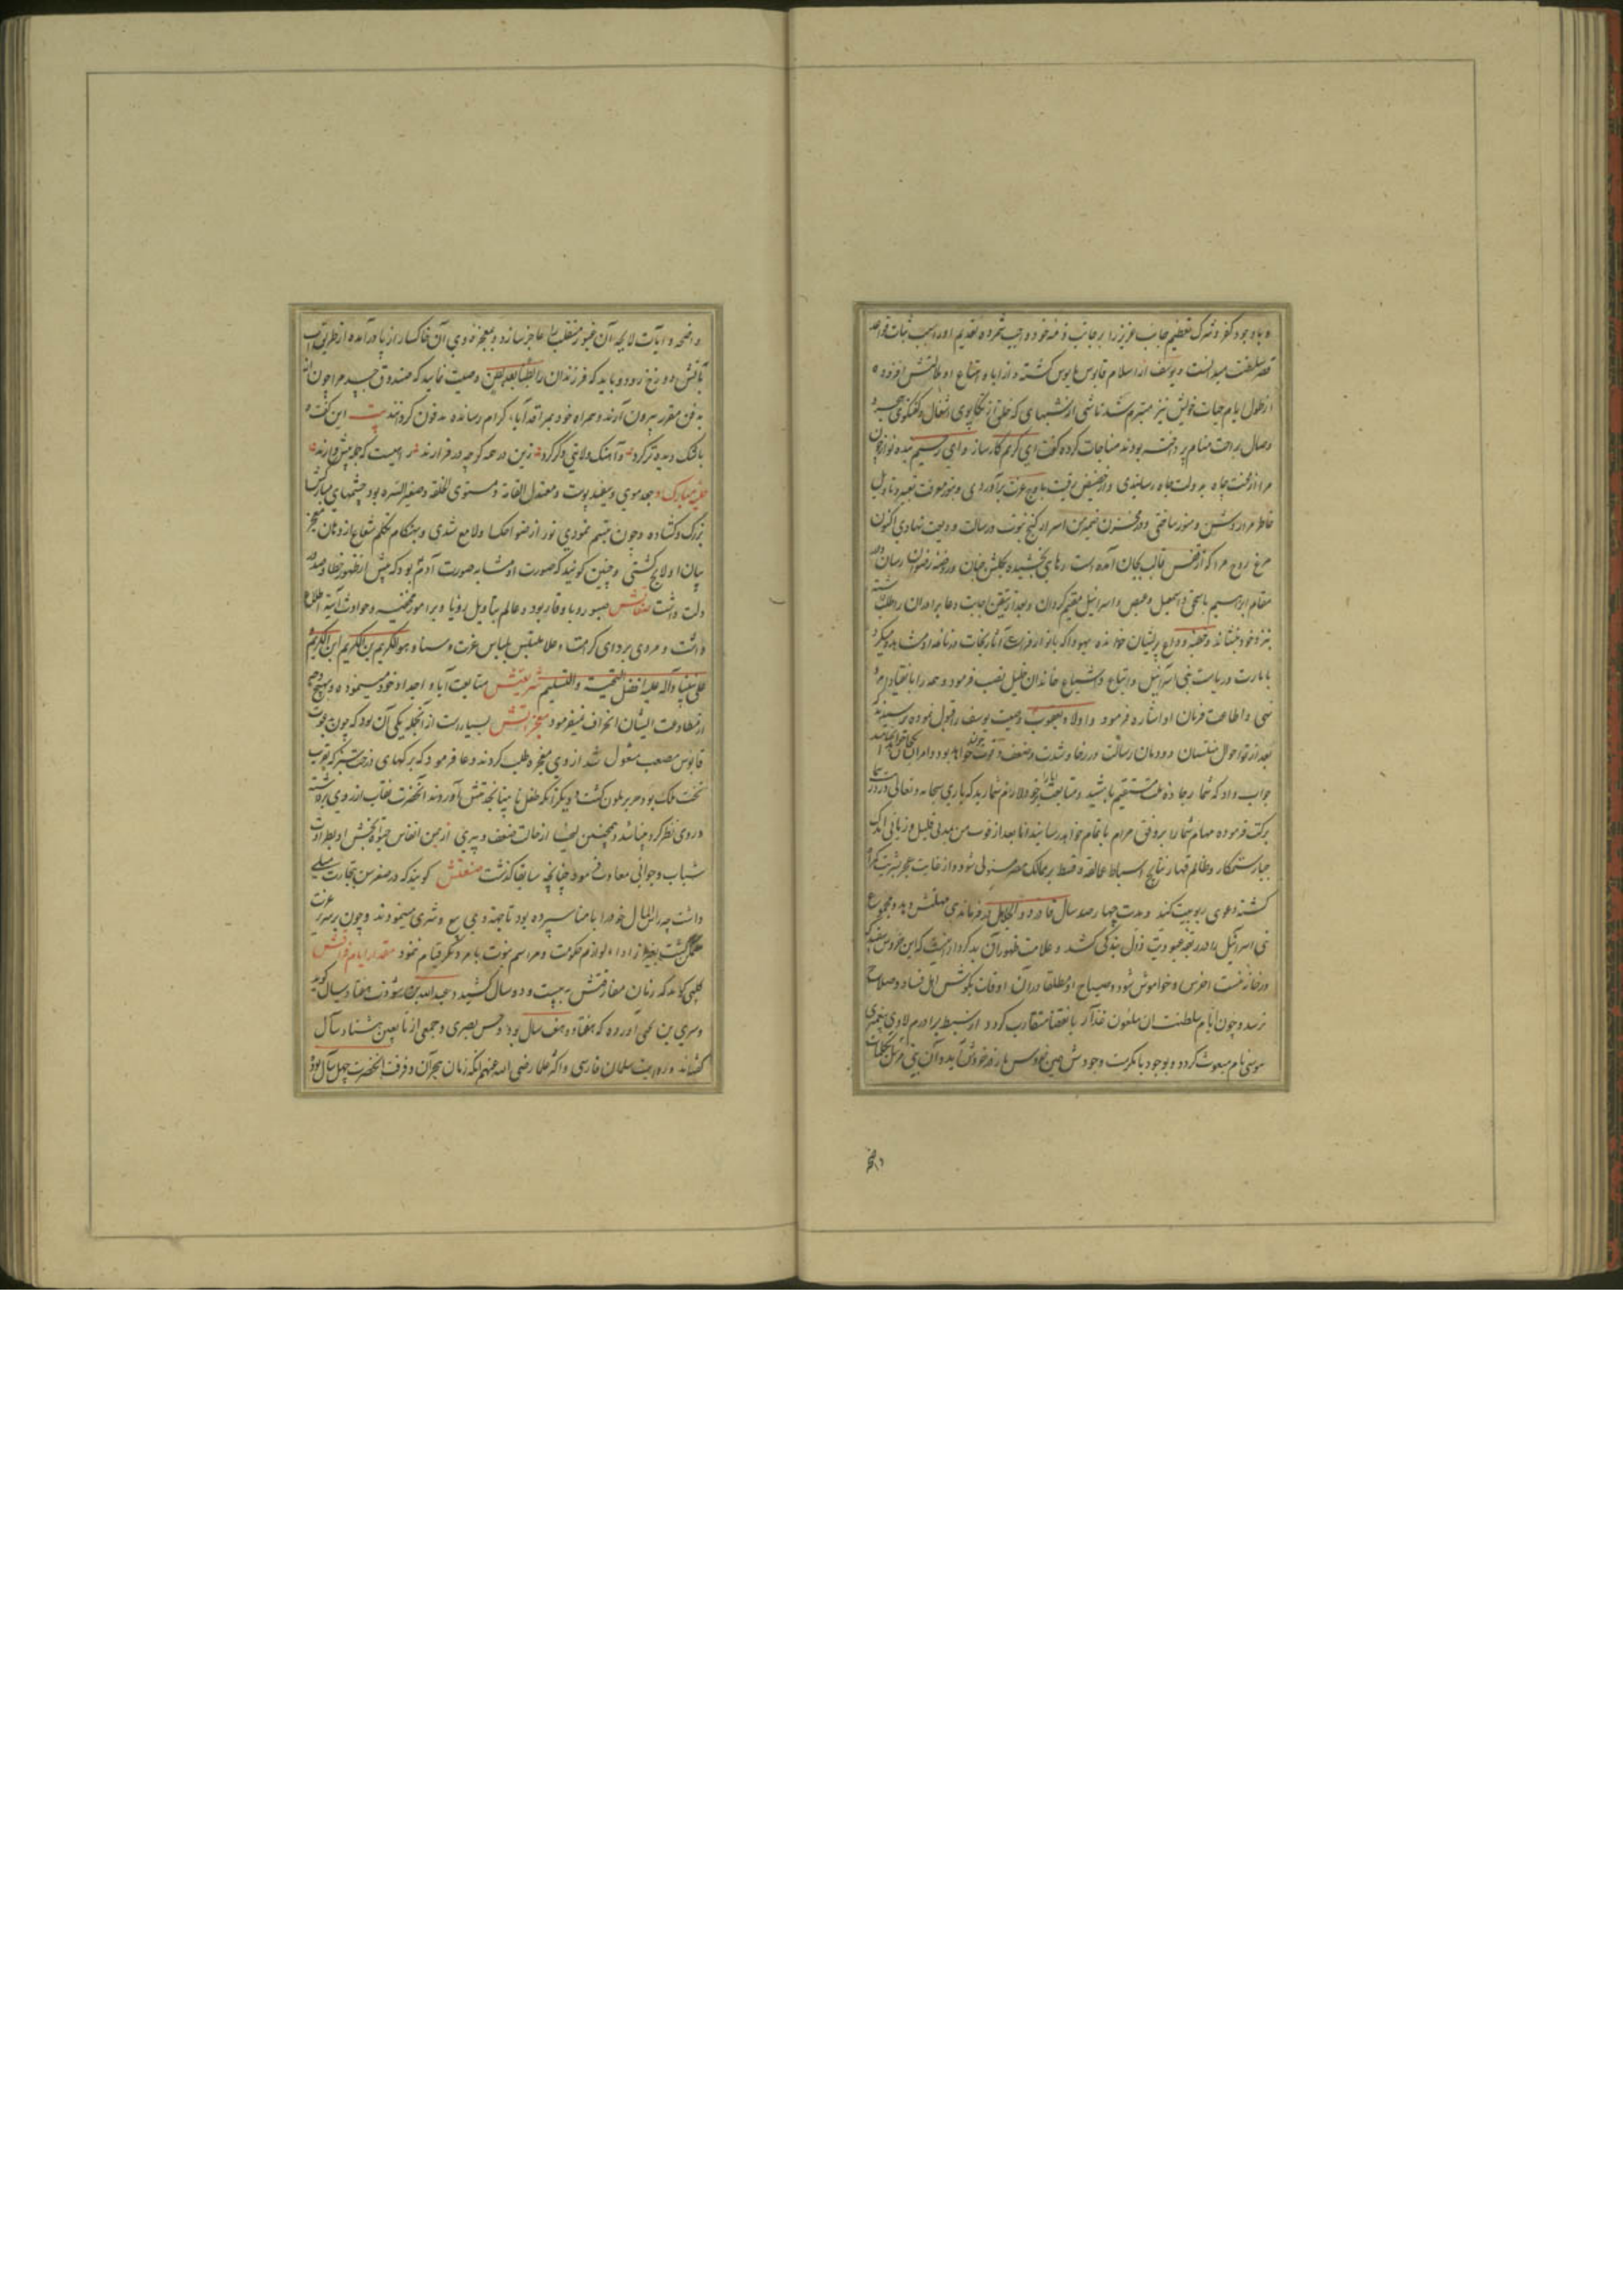 و با وجود کفر و شرک تعظیم جانب عزیز را بر جانب خود واجب شمرده تقدیم او را سبب ثبات قواعد
قصر سلطنت میدانست و یوسف از اسلام قابوس مایوس کشته و از اباء و امتناع او
از طول ایام حیات خویش نیز متبرم شد تا شبی از شبهای که خلق از تکاپوی اشغال و کفتکوی
وصال براحت منام پرداخته بودند مناجات کرده کفت ای کریم کارساز و ای رحیم بنده نواز چون
مرا از محنت چاه به دولت جاه رسانیدی و از حضیض رقیت باوج عزت برآوردی و بنور معرفت تعبیر و تاویل
خاطر مرا روشن و منور ساختی و در مخزن ضمیر من اسرار کنج نبوت و رسالت ودیعت نهادی اکنون
مرغ روح مرا که از قفس قالب بجان آمده است رهایی بخشیده بکلشن جنان و روضه رضوان رسان و در
مقام ابراهیم با اسحق و اسمعیل و عیص و اسرائیل مقیم کردان و بعد از تیقن اجابت دعا برادران را طلب داشته
نزد خود بنشاند و خطبه وداع بر ایشان خوانده یهودا که بانوار فراست آثار نجات در ناصیه او مشاهده میکرد
بامارت و ریاست بنی اسرائیل و اتباع و اشیاع خاندان خلیل نصب فرمود و همه را بانقیاد امر و
نهی و اطاعت فرمان او اشاره فرمود و اولاد یعقوب وصیت یوسف را قبول نموده پرسیدند که
بعد از تو احوال منتسبان دودمان رسالت در رخا و شدت و ضعف و قوت چون خواهد بود
جواب داد که شما بر جاده ملت مستقیم باشید و متابعت آباء خود لازم شمارید که باری سبحانه و تعالی
برکت فرموده مهام شما را بر وفق مرام باتمام خواهد رسانید اما بعد از فوت من بمدتی قلیل و زمانی اندک
جباری ستمکار و ظالم قهار از نتایج اسباط عمالقه و قبط بر ممالک مصر مستولی شود و از غایت
کشته دعوی ربوبیت کند و مدت چهارصد سال قادر ذو الجلال در فرماندهی مهلتش دهد و مجموع
بنی اسرائیل را در ربقه عبودیت و ذل بندکی کشد و علامت ظهور آن بدکردار آنست که این خروس سفید که
در خانه منست اخرس و خاموش شود و صیاح او مطلقا در آن اوقات بکوش اهل فساد و صلاح
نرسد و چون ایام سلطنت آن ملعون غدار بانقضا متقارب کردد از سبط برادرم لاوی پیغمبری
موسی نام مبعوث کردد و بوجود با مکرمت وجودش همین خروس باز در خروش آید و آن نبی مرسل بتجلیات
واضحه و آیات لایحه آن غیور متغلب را عاجز سازد و بمعجزه وی آن خاکسار از پا درآمده از طریق آب
بآتش دوزخ رود و باید که فرزندان را طبقا بعد طبق وصیت نمایید که صندوق جسد مرا چون
مدفون مقرر بیرون آورند و همراه خود بمراقد آباء کرام رسانده مدفون کردانند بیت این کفت و
باشک دیده تر کرد و آهنک ولایتی دکر کرد زین در همه کرچه در فرازند راهیست که جمله پیش دارند
حلیه مبارک وی جعد موی و سفید پوست و معتدل القامه و مستوی الخلقه و صغیر السره بود چشمهای مبارکش
بزرک و کشاده و چون تبسم نمودی نور از ضواحک او لامع شدی و بهنکام تکلم شعاع از دهان معجز
بیان او لایح کشتی و چنین کویند که صورت او مشابه صورت آدم بود که پیش از ظهور خطا و صدور
زلت داشت صفاتش صبور و با وقار بود و عالم بتاویل رؤیا و بر امور مخفیه و حوادث آتیه اطلاع
داشت و مرتدی بردای کرامت و علا متلبس بلباس عزت و سنا و هو الکریم بن الکریم ابن الکریم
علی نبینا و آله علیه افضل التحیة و التسلیم شریعتش متابعت آباء و اجداد خود مینمود و بهیچ وجه
از مطاوعت ایشان انحراف نمیفرمود معجزاتش بسیار است از آنجمله یکی آن بود که چون بدعوت
قابوس مصعب مشغول شد از وی معجزه طلب کردند دعا فرمود که برکهای درختی بزرک که بقرب
تخت ملک بود حریر ملون کشت و دیکر آنکه طفل نابینا نزدش آوردند آنحضرت نقاب از روی برداشته
در وی نظر کرد بینا شد و همچنین زلیخا از حالت ضعف و پیری از یمن انفاس حیوة بخش او بطراوت
شباب و جوانی معاودت نمود چنانچه سابقا کذشت صنعتش کویند که در صغر سن بتجارت میلی
داشت چه راس المال خود را بامنا سپرده بود تا جهة وی بیع و شری مینمودند و چون بر سریر عزت
متمکن کشت بغیر از اداء لوازم حکومت و مراسم نبوت بامر دیکر قیام ننمود مقدار ایام فراقش
کلبی کوید که زمان مفارقتش به بیست و دو سال کشید و عبد الله بن مسعود هفتاد سال کوید
و سری بن یحیی آورده که هفتاد و هفت سال بود و حسن بصری و جمعی از تابعین هشتاد سال
کفته‌اند و روایت سلمان فارسی و اکثر علما رضی الله عنهم آنکه زمان هجران و فرقت آنحضرت چهل سال بود